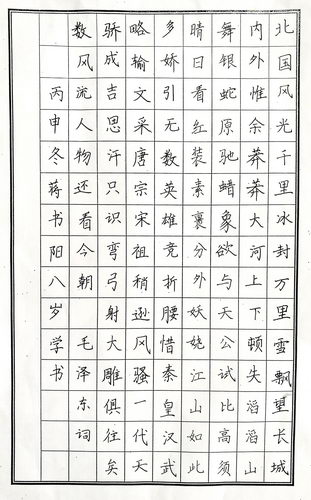 北国风光千里冰封万里雪飘望长城
内外惟余莽莽大河上下顿失滔滔山
舞银蛇原驰蜡象欲与天公试比高须
晴日看红装素裹分外妖娆江山如此
多娇引无数英雄竞折腰惜秦皇汉武
略输文采唐宗宋祖稍逊风骚一代天
骄成吉思汗只识弯弓射大雕俱往矣
数风流人物还看今朝 毛泽东词
丙申冬蒋书阳八岁学书